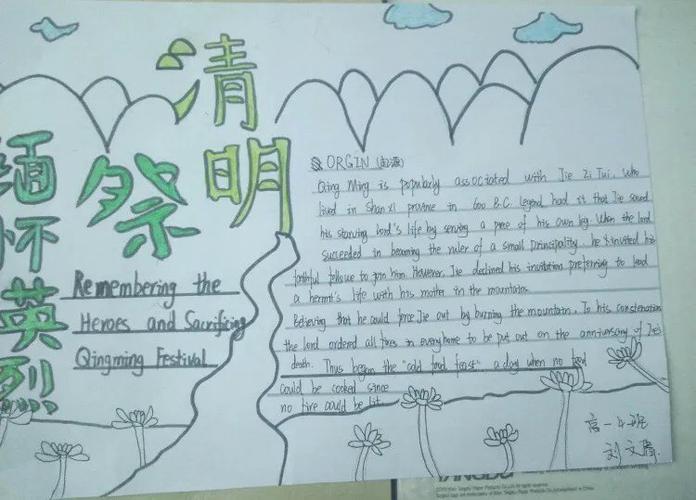 清明
祭
缅怀英烈
Remembering the
Heroes and Sacrificing
Qingming Festival
ORGIN (起源)
Qing Ming is popularly associated with Jie Zi Tui, who
lived in Shan xi provine in 600 B.C. legend had it that Jie saved
his starving lord's life by serving a piece of his own leg. When the lord
succeeded in becoming the ruler of a small principality, he invited his
faithful follower to join him. However, Jie declined his invitation preferring to lead
a hermit's life with his mother in the mountains.
Believing that he could force Jie out by burning the mountain. To his consternation
the lord ordered all fires in every home to be put out on the anniversary of Jie's
death. Thus began the "cold food feast" a day when no food
could be cooked since
no fire could be lit.
高一4班
刘文